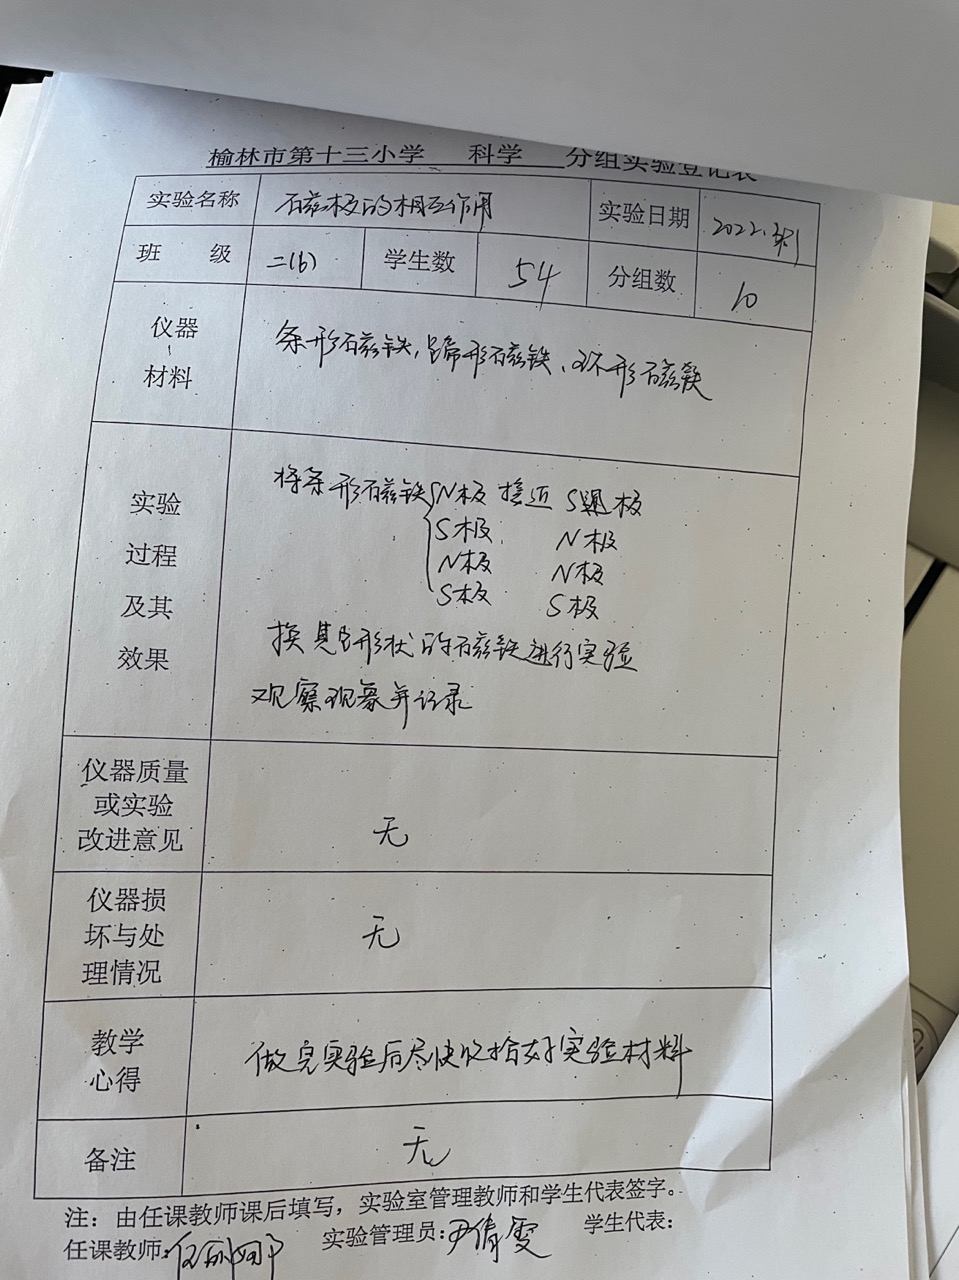 榆林市第十三小学 科学 分组实验登记表
实验名称 磁极的相互作用 实验日期 2022.
班 级 二(6) 学生数 54 分组数 10
仪器、材料
条形磁铁,蹄形磁铁、环形磁铁
实验
过程
及其
效果
将条形磁铁 N极 接近 S极
S极 N极
N极 N极
S极 S极
换其它形状的磁铁进行实验
观察现象并记录
仪器质量
或实验
改进意见
无
仪器损
坏与处
理情况
无
教学
心得
做完实验后尽快收拾好实验材料
备注 无
注:由任课教师课后填写,实验室管理教师和学生代表签字。
任课教师: 实验管理员:尹倩雯 学生代表: